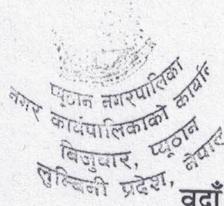 प्यूठान नगरपालिका
नगर कार्यपालिकाको कार्यालय
बिजुवार, प्यूठान
लुम्बिनी प्रदेश, नेपाल
वडाँ